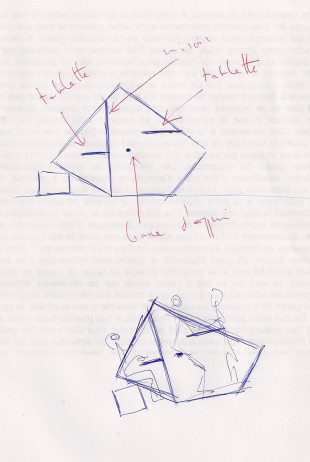 miroir
tablette
tablette
barre d'appui